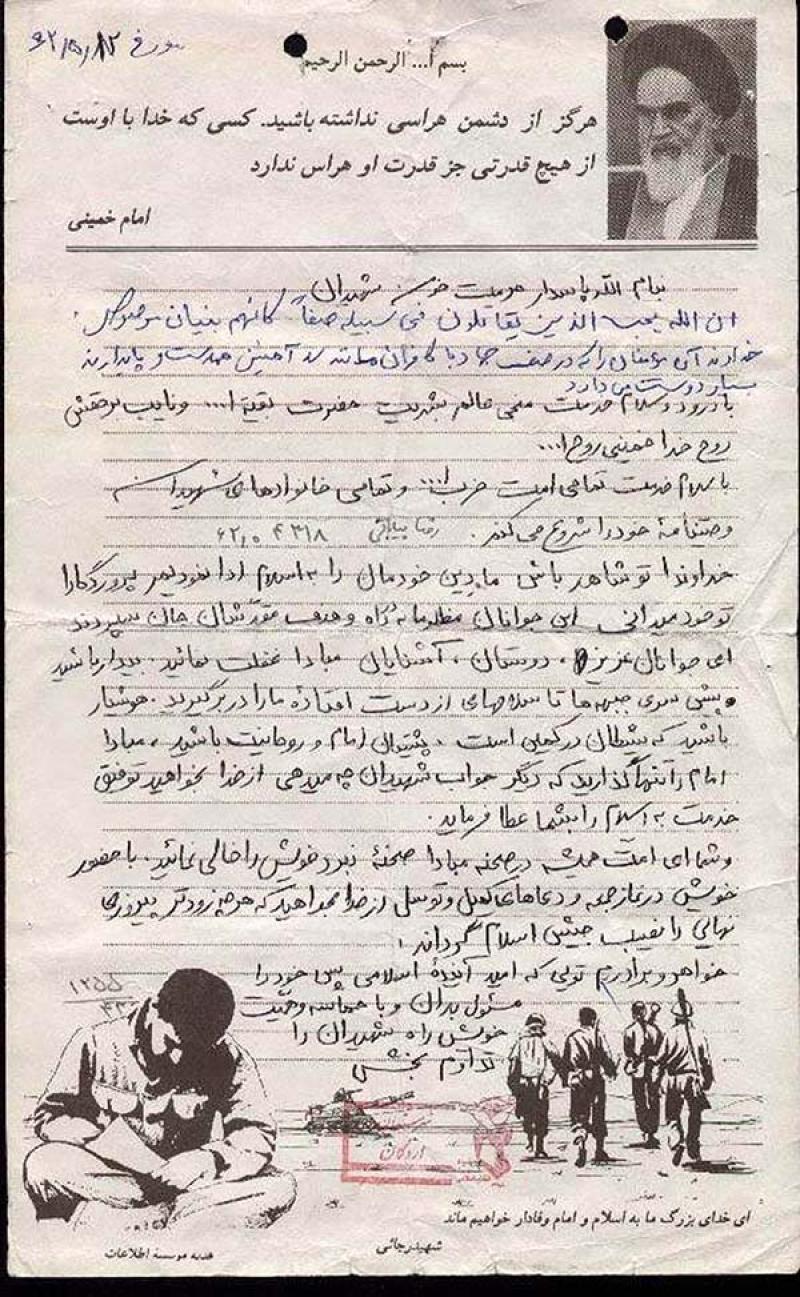 مورخ ۶۲/۵/۱۲
بسم ا... الرحمن الرحیم
هرگز از دشمن هراسی نداشته باشید. کسی که خدا با اوست
از هیچ قدرتی جز قدرت او هراس ندارد
امام خمینی
بنام الله پاسدار حرمت خون شهیدان
ان الله یحب الذین یقاتلون فی سبیله صفاً کانهم بنیان مرصوص
خداوند آن مؤمنان را که در صف جهاد با کافران مانند سد آهنین همدست و پایدارند
بسیار دوست می دارد
با درود و سلام خدمت منجی عالم بشریت حضرت بقیة ا... و نایب برحقش
روح خدا خمینی روح ا...
با سلام خدمت تمامی امت حزب ا... و تمامی خانوادهای شهیدان
وصیتنامهٔ خود را شروع می کنم. رضا ۶۲۰۴۳۱۸
خداوندا تو شاهد باش ما دین خودمان را به اسلام ادا نمودیم پروردگارا
تو خود میدانی این جوانان مظلومانه راه و هدف مقدسشان جان سپردند
ای جوانان عزیز، دوستان، آشنایان مبادا غفلت نمائید. بیدار باشید
پیش سوی جبهه ها تا سلاحهای از دست افتادهٔ ما را در برگیرید. هوشیار
باشید که شیطان در کمین است. پشتیبان امام و روحانیت باشید، مبادا
امام را تنها گذارید که دیگر جواب شهیدان چه میدهی از خدا بخواهید توفیق
خدمت به اسلام را بشما عطا فرماید.
و شما ای امت همیشه در صحنه مبادا صحنهٔ نبرد خویش را خالی نمائید. با حضور
خویش در نماز جمعه و دعاهای کمیل و توسل از خدا بخواهید که هر چه زودتر پیروزی
نهایی را نصیب جیش اسلام گرداند.
خواهر و برادرم تویی که امید آیندهٔ اسلامی پس خود را
مسئول بدان و با حماسه وصیت
خویش راه شهیدان را
تداوم بخش
۱۲۵۵
اردکان
ای خدای بزرگ ما به اسلام و امام وفادار خواهیم ماند
شهید رجائی
هدیه موسسه اطلاعات